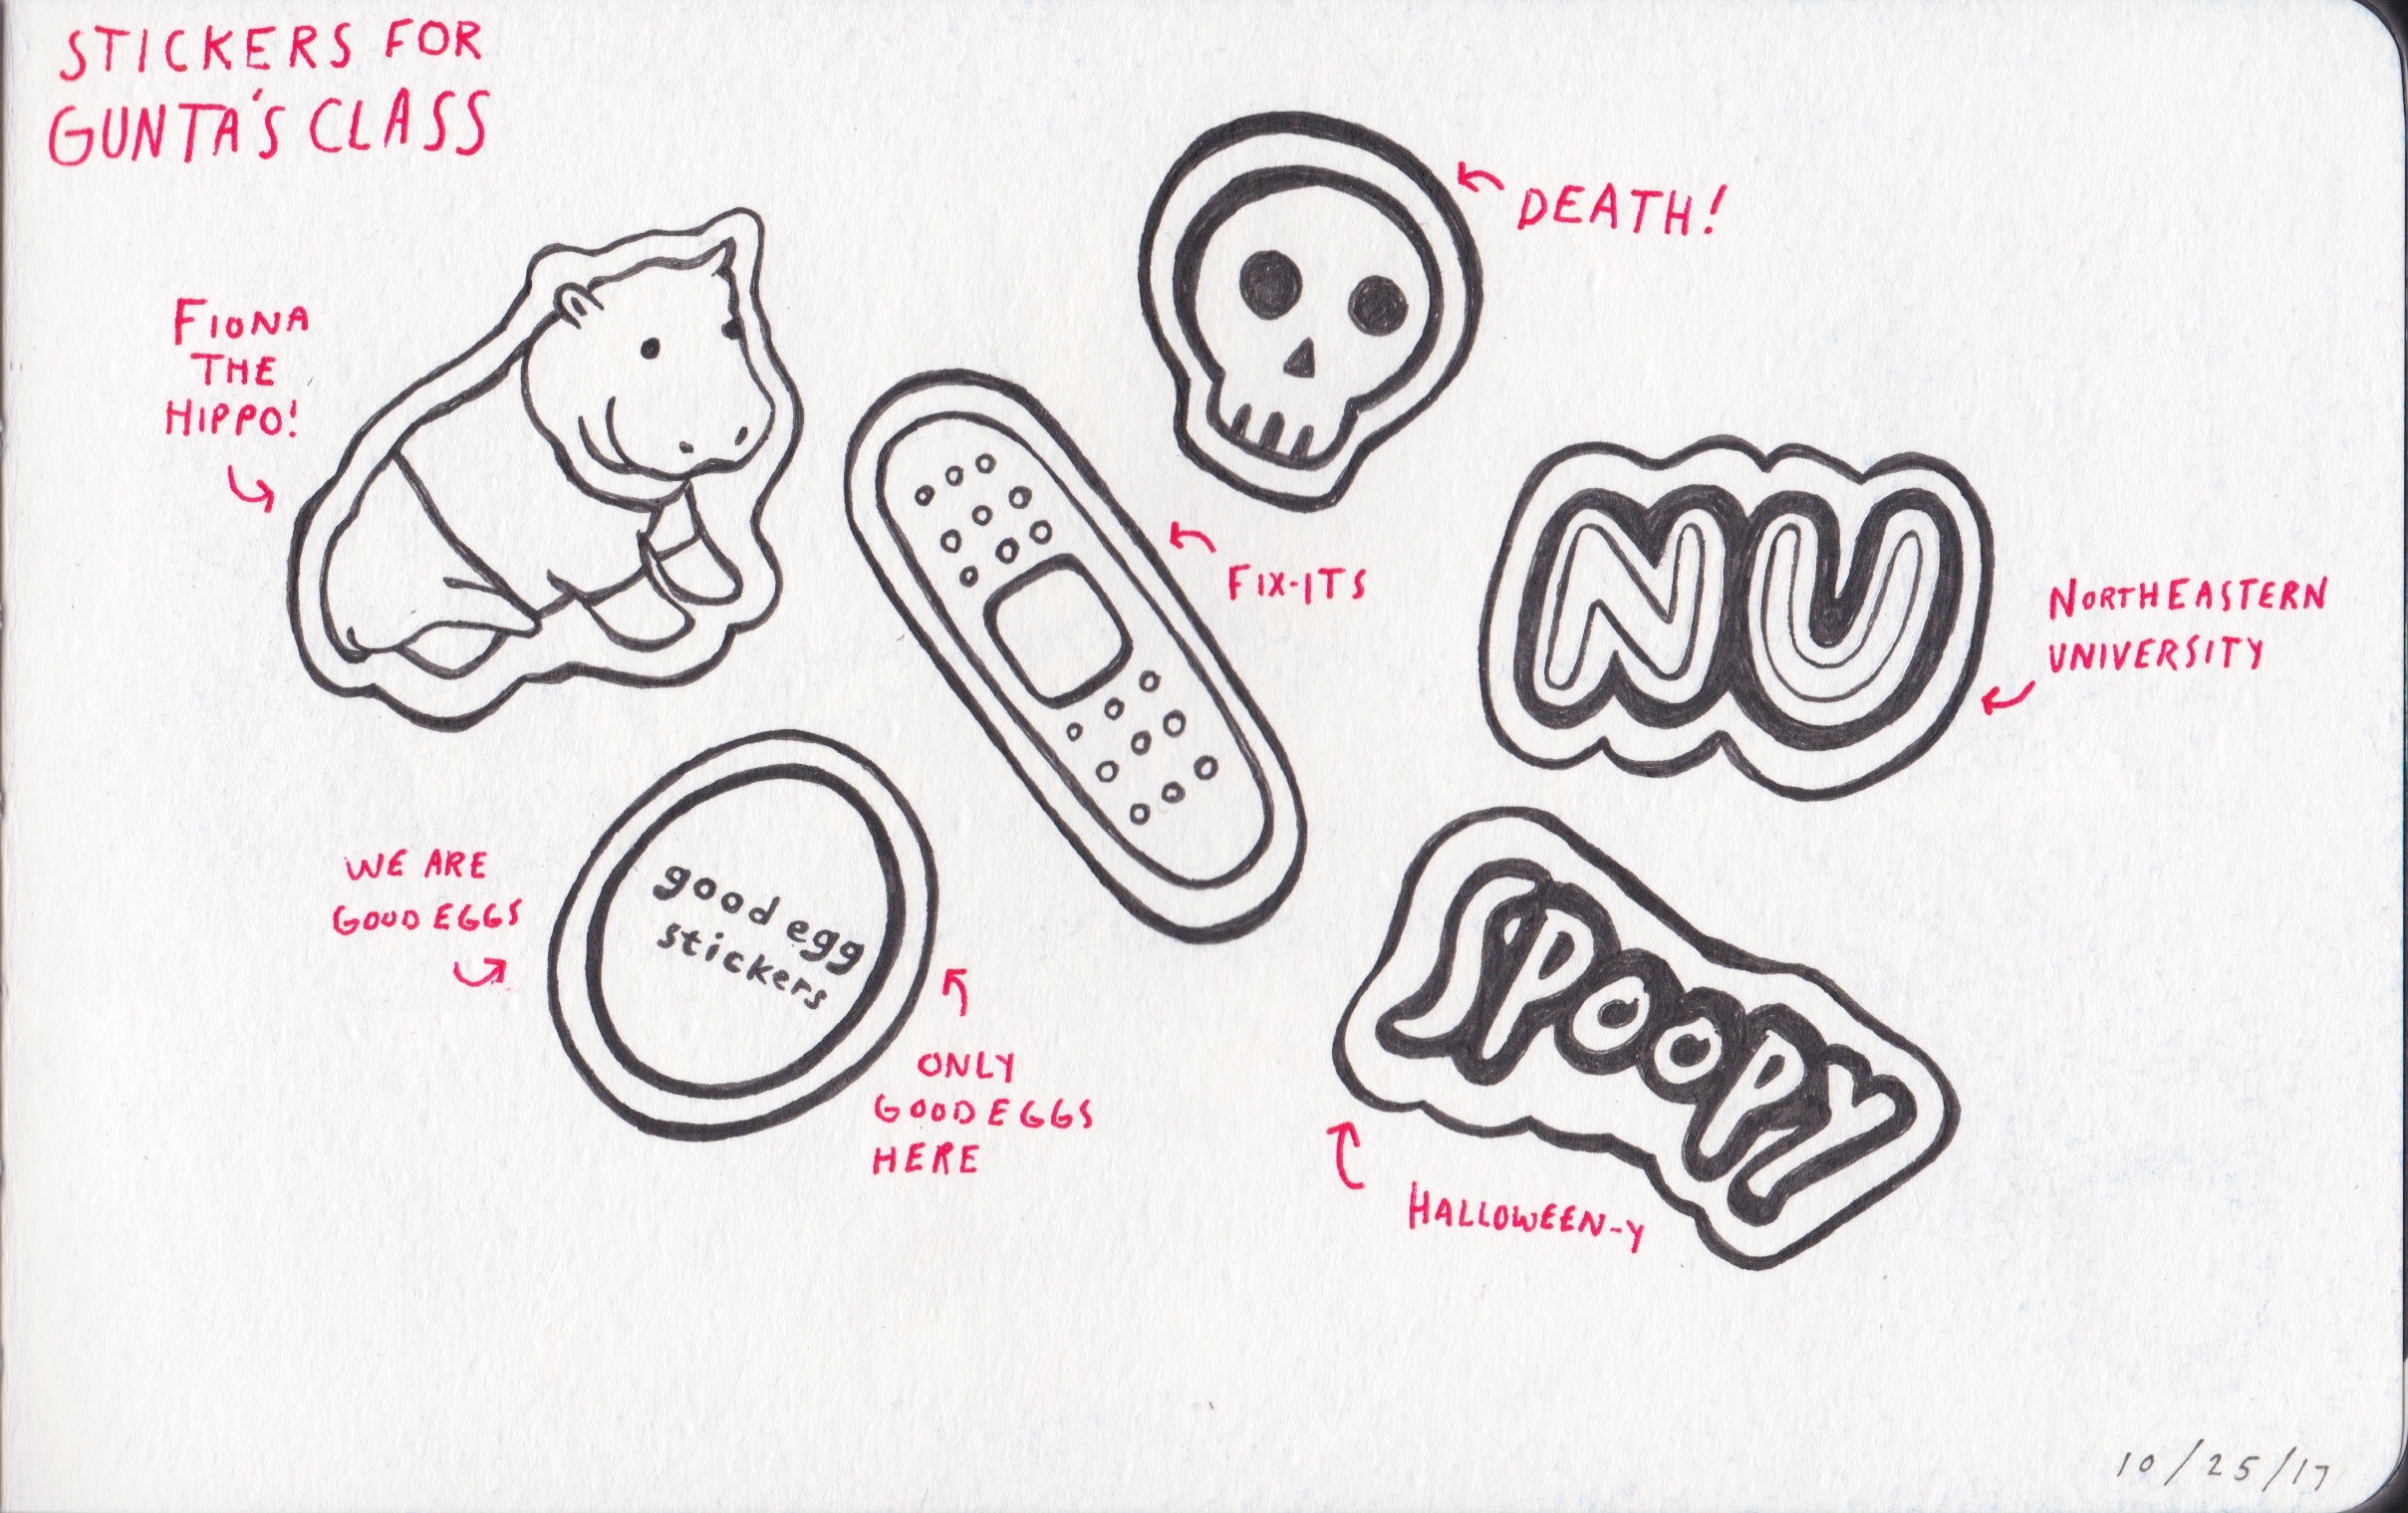 STICKERS FOR
GUNTA'S CLASS
DEATH!
FIONA
THE
HIPPO!
FIX-ITS
NU
NORTHEASTERN
UNIVERSITY
WE ARE
GOOD EGGS
good egg
stickers
ONLY
GOOD EGGS
HERE
SPOOPY
HALLOWEEN-Y
10/25/17